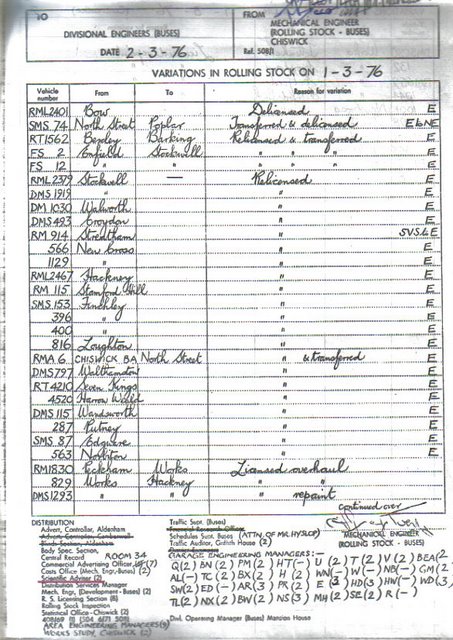 10
DIVISIONAL ENGINEERS (BUSES)
DATE 2-3-76
FROM
MECHANICAL ENGINEER
(ROLLING STOCK - BUSES)
CHISWICK
Ref. 508/1
VARIATIONS IN ROLLING STOCK ON 1-3-76
Vehicle number From To Reason for variation
RML2401 Bow Delicensed E
SMS 74 North Street Poplar Transferred & delicensed E to NE
RT1562 Bexley Barking Relicensed & transferred E
FS 2 Enfield Stockwell " " " E
FS 12 " " " " " E
RML2379 Stockwell — Relicensed E
DMS 1919 " " E
DM 1030 Walworth " E
DMS 493 Croydon " E
RM 914 Streatham " SVS to E
566 New Cross " E
1129 " " E
RML2467 Hackney " E
RM 115 Stamford Hill " E
SMS 153 Finchley " E
396 " " E
400 " " E
816 Loughton " E
RMA 6 CHISWICK BA North Street " & transferred E
DMS797 Walthamstow " E
RT 4210 Seven Kings " E
4520 Harrow Weald " E
DMS 115 Wandsworth " E
287 Putney " E
SMS 87 Edgware " E
563 Norbiton " E
RM1830 Peckham Works Licensed overhaul
829 Works Hackney "
DMS1293 " " " repaint
continued over
DISTRIBUTION
Advert. Controller, Aldenham
Advert. Controller, Camberwell
Body Spec. Section,
Central Record ROOM 34
Commercial Advertising Officer,
Costs Office (Mech. Engr.-Buses) (2)
Scientific Adviser (2)
Distribution Services Manager
Mech. Engr. (Development - Buses) (2)
R. S. Licensing Section (8)
Rolling Stock Inspection
Statistical Office - Chiswick (2)
AREA ENGINEERING MANAGERS(9)
WORKS STUDY, CHISWICK (2)
Traffic Supt. (Buses)
Financial Research Officer
Schedules Supt. Buses (ATTN. OF MR. HYSLOP)
Traffic Auditor, Griffith House (2)
MECHANICAL ENGINEER
(ROLLING STOCK - BUSES)
GARAGE ENGINEERING MANAGERS:-
Q(2) BN(2) PM(2) HT(-) U(2) T(2) V(2) BEA(2
AL(-) TC(2) BX(2) H(2) WN(-) W(-) NB(-) GM(2)
SW(2) ED(-) AR(3) PR(2) E(3) HD(3) HN(-) WD(3)
TL(2) NX(2) BW(2) NS(3) MH(2) SE(2) R(-)
Divl. Operating Manager (Buses) Mansion House